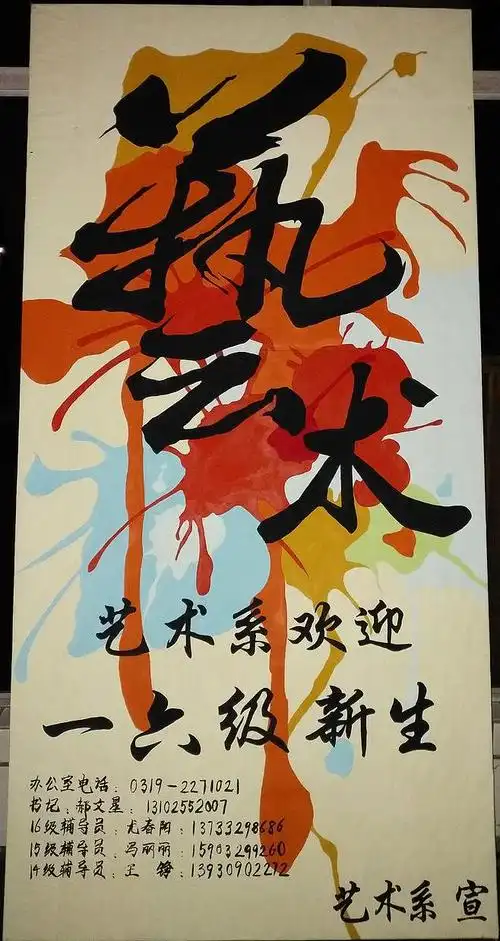 藝术
艺术系欢迎
一六级新生
办公室电话：0319-2271021
书记：郝文星：13102552007
16级辅导员：尤春陶：13733298686
15级辅导员：马丽丽：15903299260
14级辅导员：王 铮：13930902272
艺术系 宣